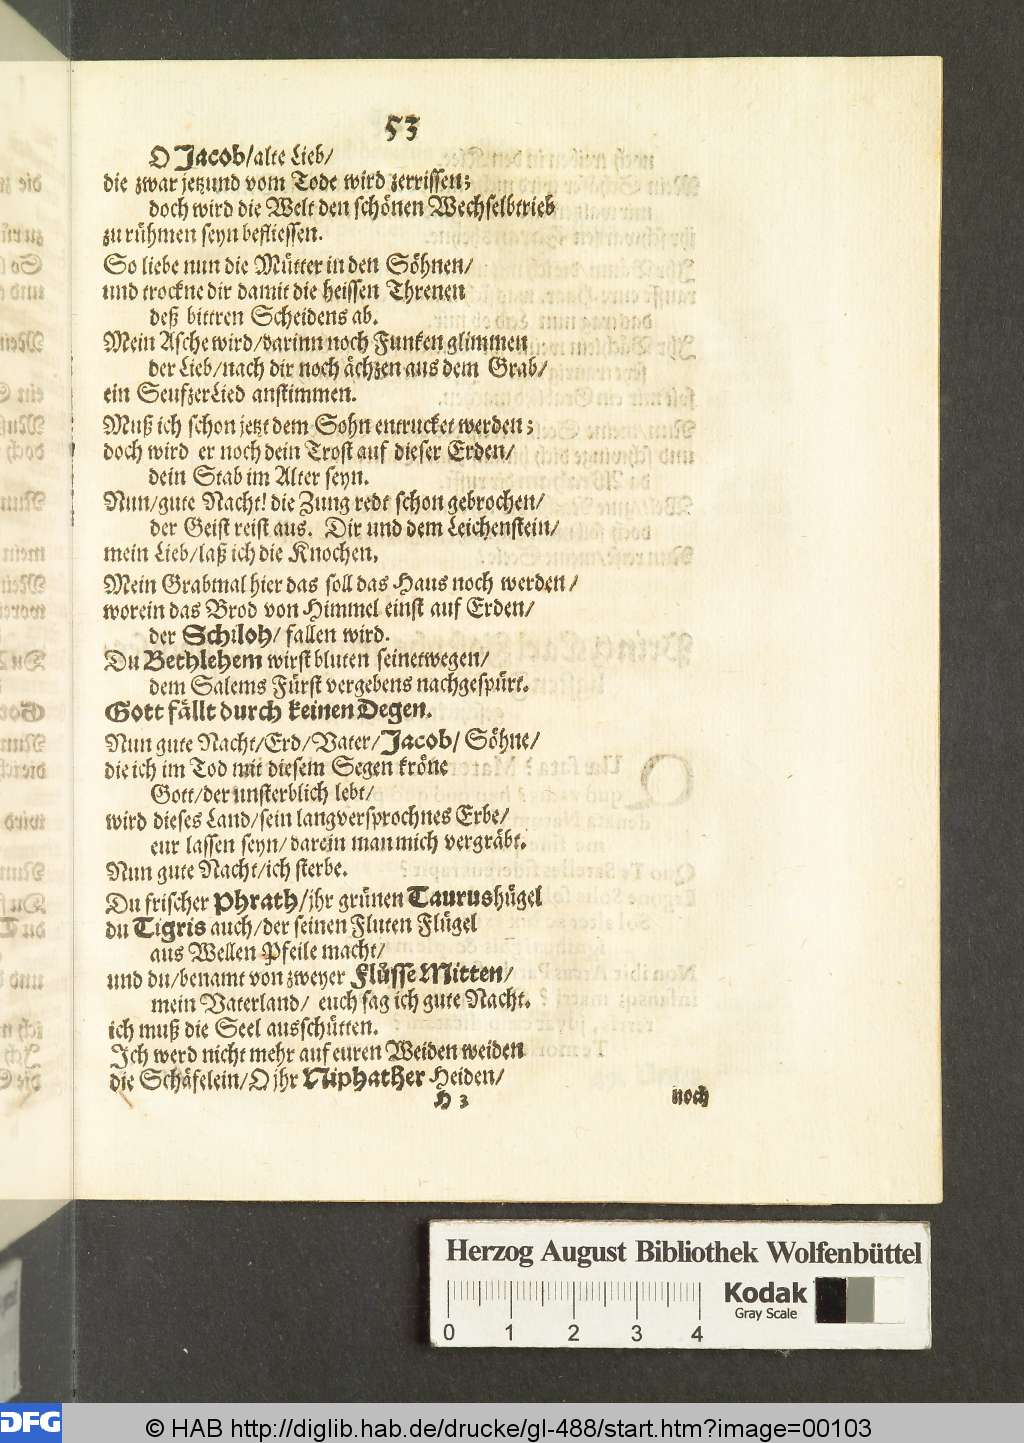 53
O Jacob/alte Lieb/
die zwar jetzund vom Tode wird zerrissen;
doch wird die Welt den schönen Wechselbtrieb
zu rühmen seyn befliessen.
So liebe nun die Mütter in den Söhnen/
und trockne dir damit die heissen Threnen
deß bittren Scheidens ab.
Mein Asche wird/darinn noch Funken glimmen
der Lieb/nach dir noch ächzen aus dem Grab/
ein SeufzerLied anstimmen.
Muß ich schon jetzt dem Sohn entrucket werden;
doch wird er noch dein Trost auf dieser Erden/
dein Stab im Alter seyn.
Nun/gute Nacht! die Zung redt schon gebrochen/
der Geist reist aus. Dir und dem Leichenstein/
mein Lieb/laß ich die Knochen,
Mein Grabmal hier das soll das Haus noch werden/
worein das Brod von Himmel einst auf Erden/
der Schiloh/ fallen wird.
Du Bethlehem wirst bluten seinetwegen/
dem Salems Fürst vergebens nachgespürt.
Gott fällt durch keinen Degen.
Nun gute Nacht/Erd/Vater/Jacob/ Söhne/
die ich im Tod mit diesem Segen kröne
Gott/der unsterblich lebt/
wird dieses Land/sein langversprochnes Erbe/
eur lassen seyn/darein man mich vergräbt.
Nun gute Nacht/ich sterbe.
Du frischer Phrath/jhr grünen Taurushügel
du Tigris auch/der seinen Fluten Flügel
aus Wellen Pfeile macht/
und du/benamt von zweyer Flüsse Mitten/
mein Vaterland/ euch sag ich gute Nacht.
ich muß die Seel ausschütten.
Ich werd nicht mehr auf euren Weiden weiden
die Schäfelein/O jhr Niphather Heiden/
H 3 noch
Herzog August Bibliothek Wolfenbüttel
Kodak
Gray Scale
0 1 2 3 4
DFG © HAB http://diglib.hab.de/drucke/gl-488/start.htm?image=00103